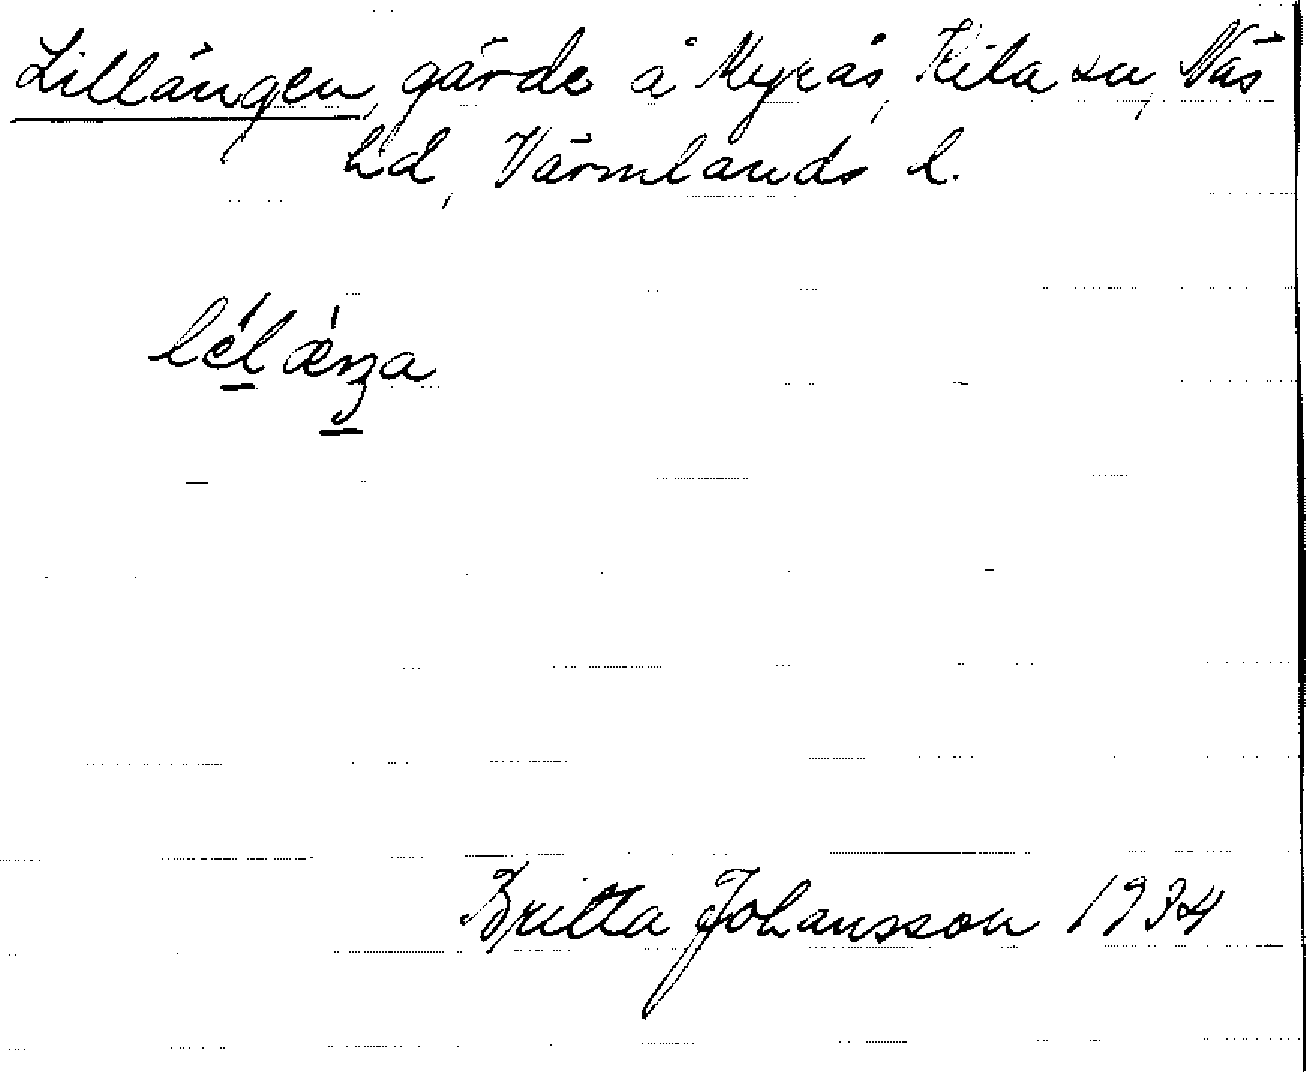 Lillängen, gärde å Myrås, Kila sn, Näs
hd, Värmlands l.
lélǽŋa
Britta Johansson 1934